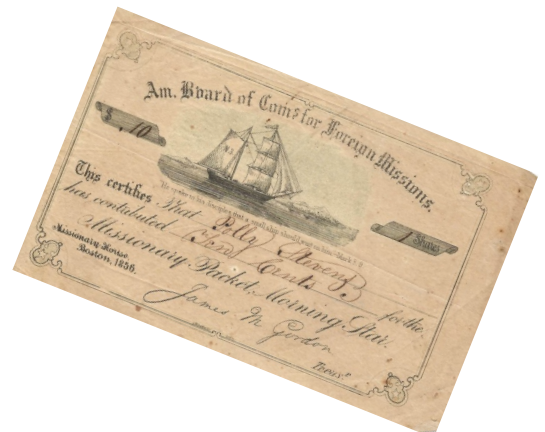 Am. Board of Coms for Foreign Missions.
$ .10
1 Shares
This certifies That Polly Stevens
has contributed Ten Cents for the
Missionary Packet, Morning Star.
Missionary House,
Boston, 1856.
James M Gordon
Treasr.